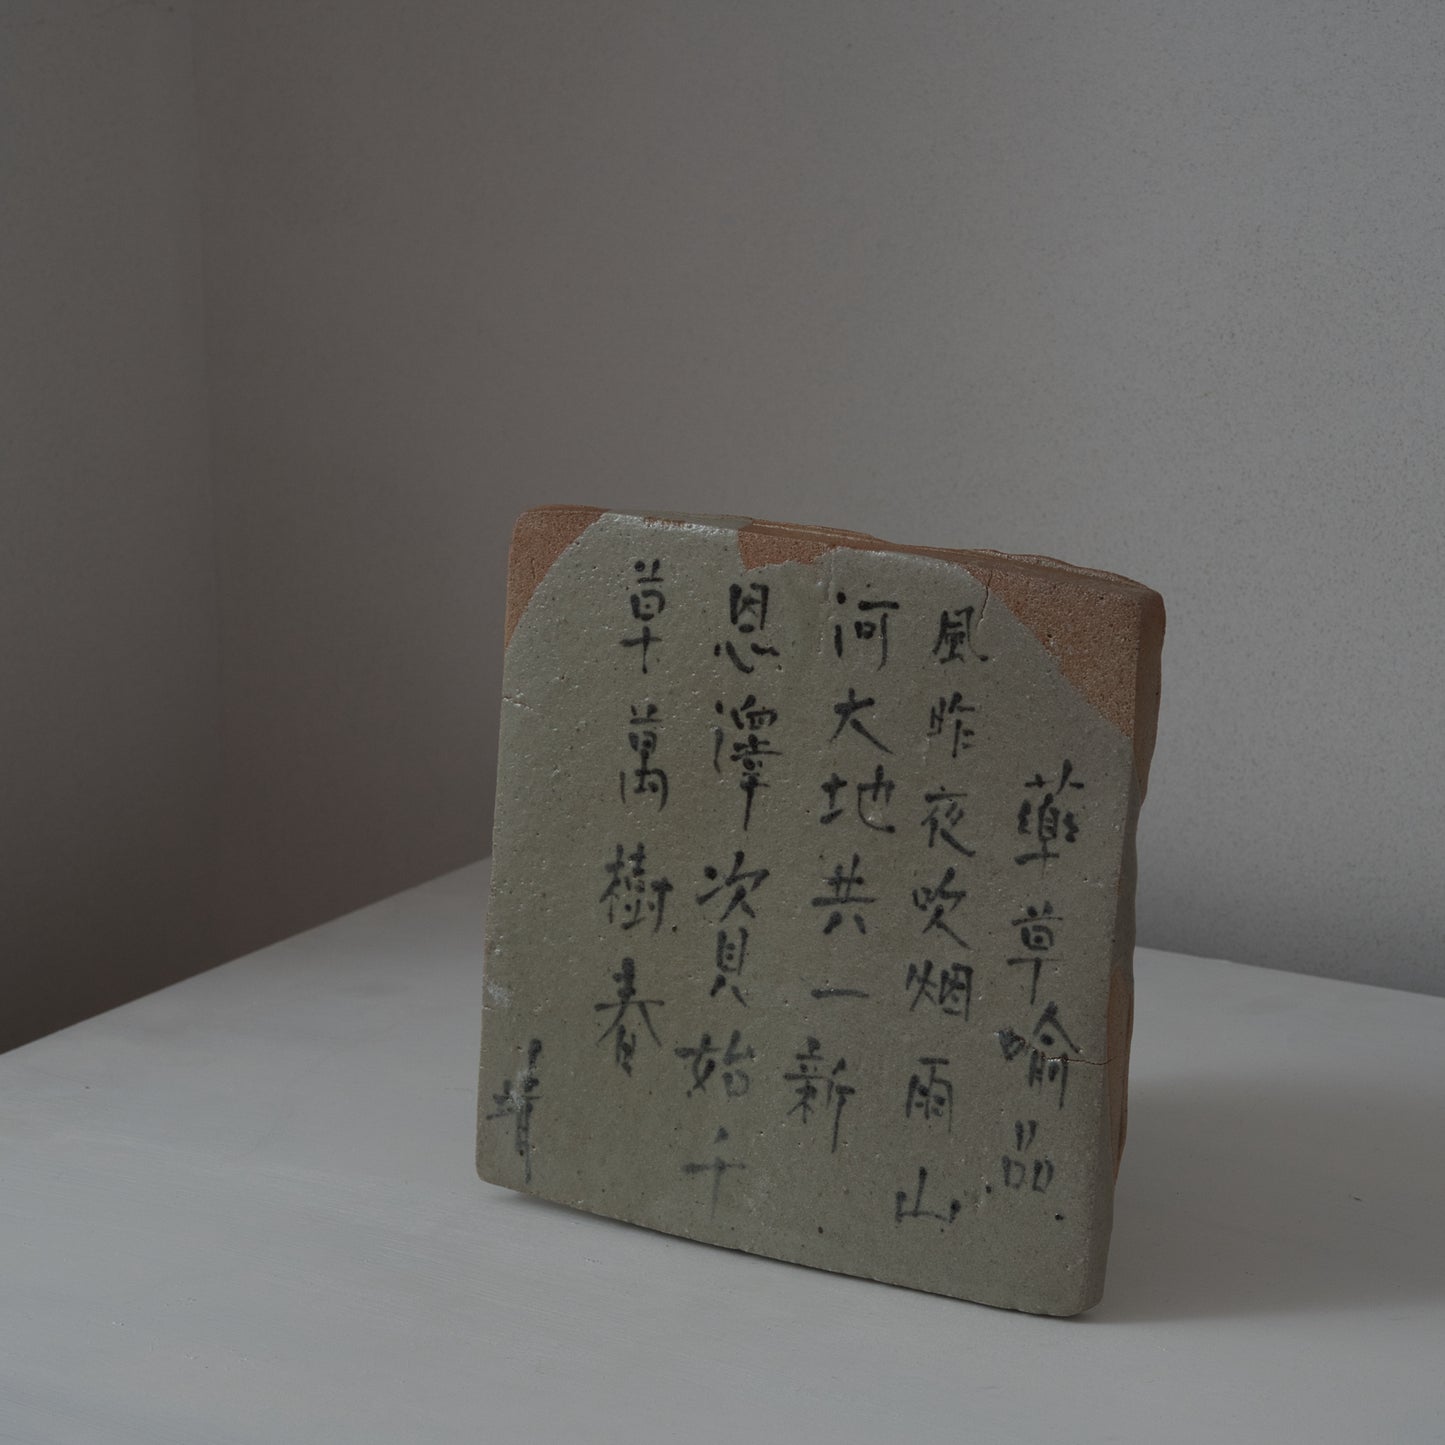 藥草喻品
風昨夜吹烟雨山
河大地共一新
恩澤資始千
草萬樹春